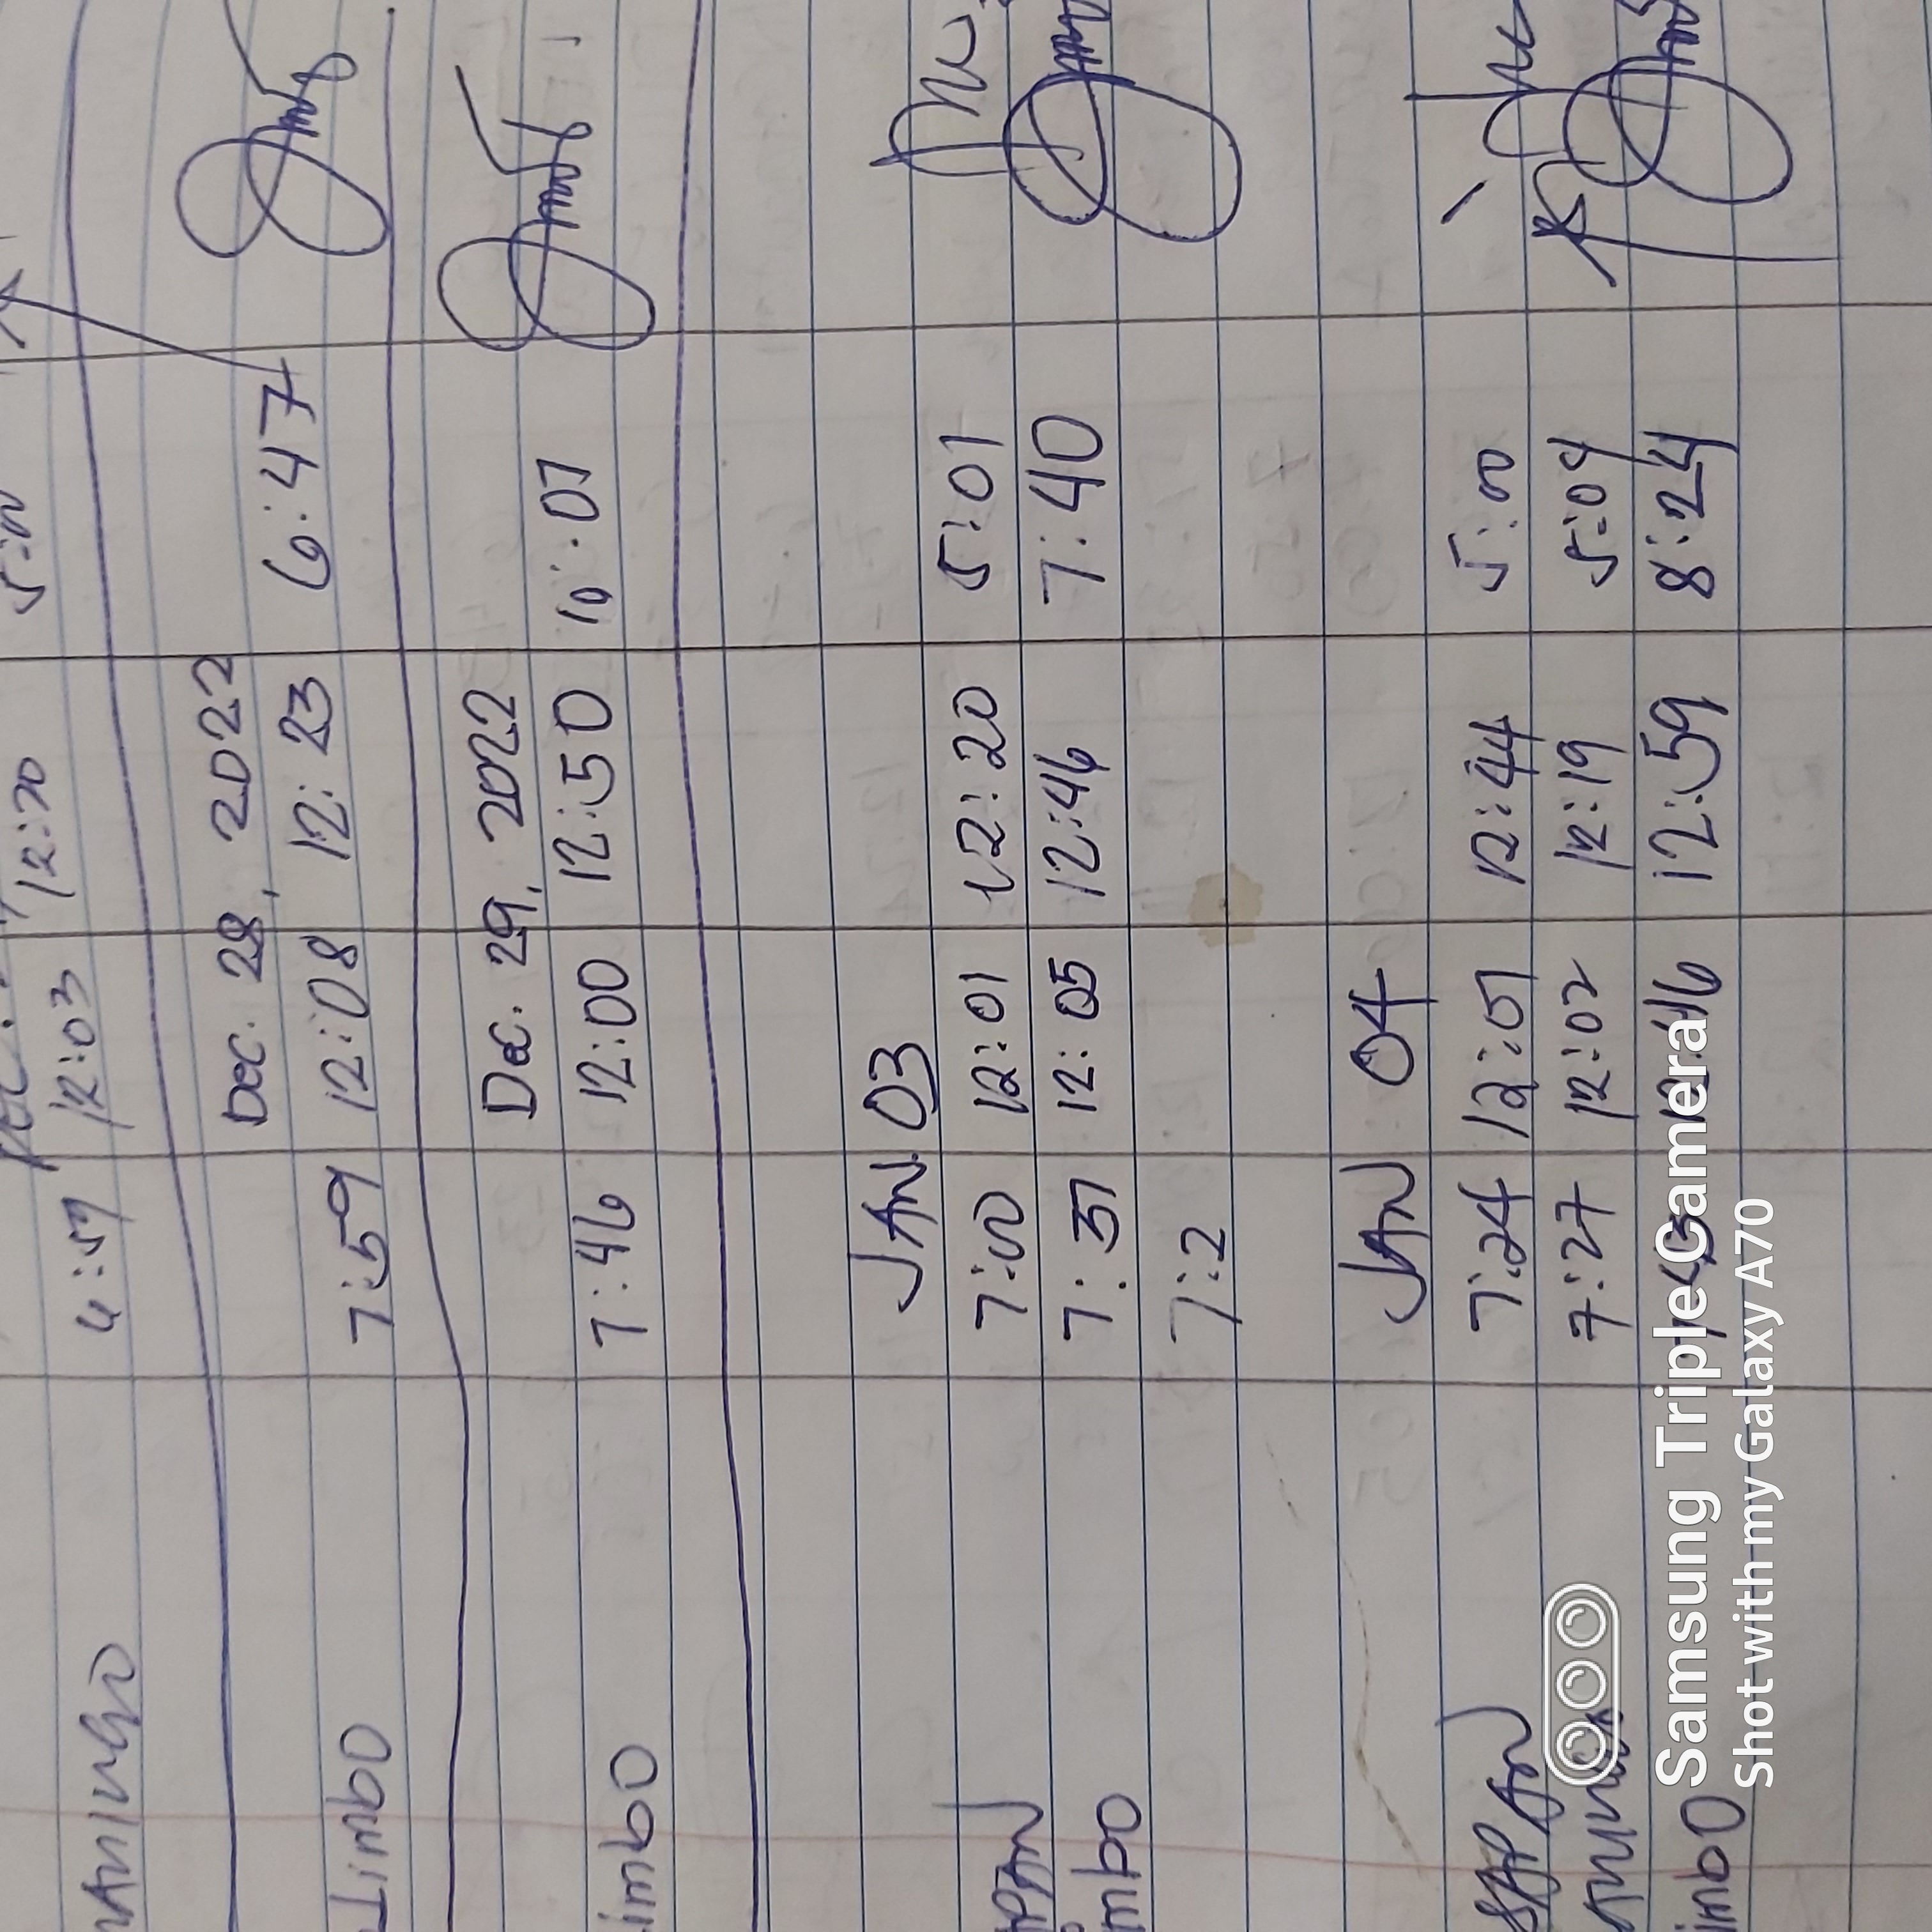 12:03 12:20 5:00
4:57
Dec. 28, 2022
Limbo 7:59 12:08 12:23 6:47
Dec. 29, 2022
imbo 7:46 12:00 12:50 6:07
JAN. 03
7:00 12:01 12:20 5:01
mbo 7:37 12:05 12:46 7:40
7:2
JAN 04
7:24 12:01 12:44 5:00
7:27 12:02 12:19 5:04
imbo 12:59 8:24
Samsung Triple Camera
Shot with my Galaxy A70